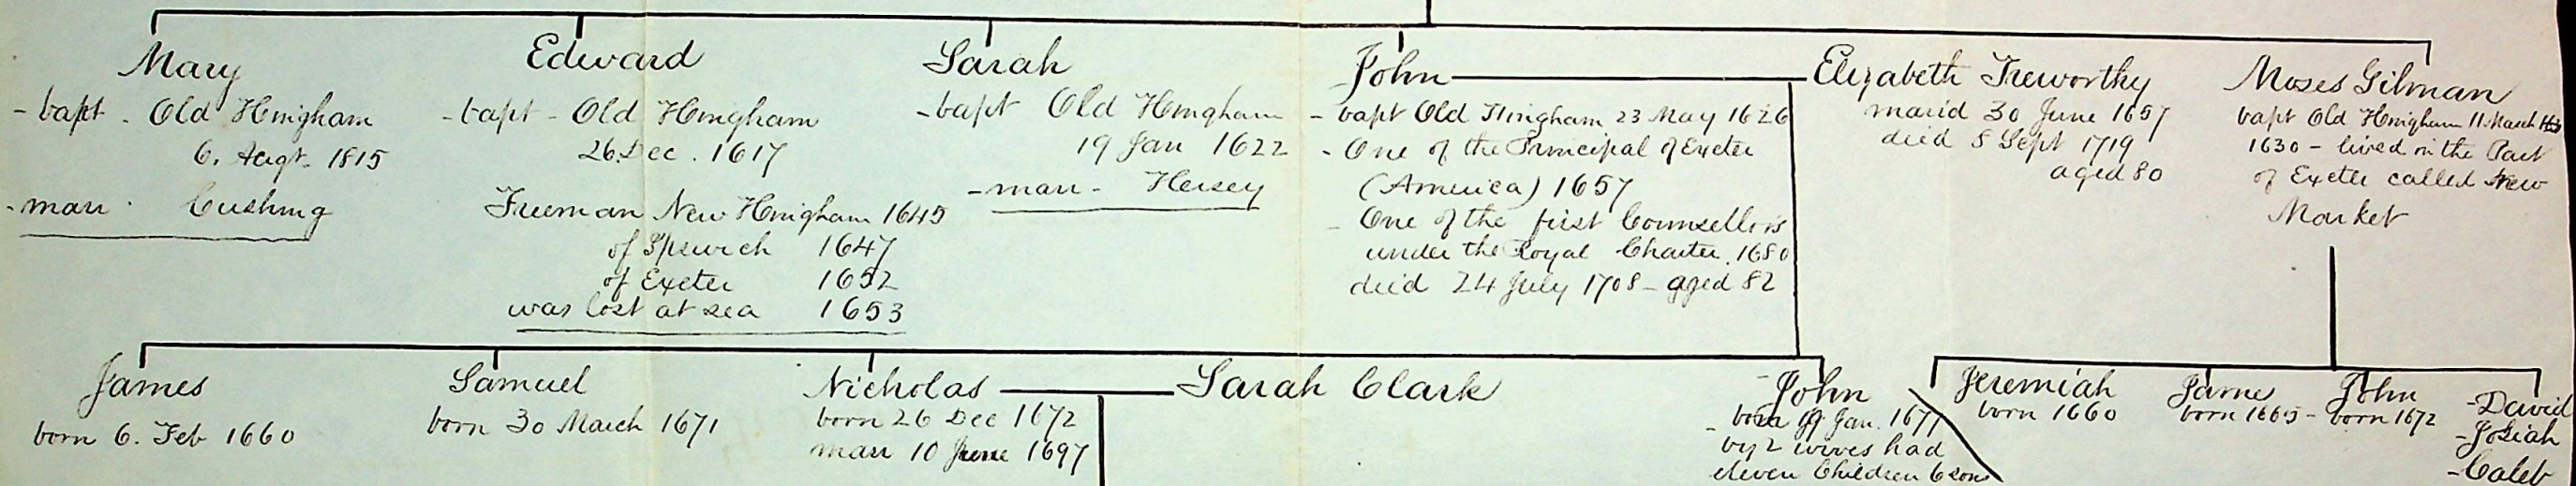 Mary
- bapt. Old Hingham
6. Augt. 1815
- marr. Cushing
Edward
- bapt - Old Hingham
26. Dec. 1617
Freeman New Hingham 1645
of Ipswich 1647
of Exeter 1652
was lost at sea 1653
Sarah
- bapt Old Hingham
19 Jan 1622
- marr - Hersey
John
- bapt Old Hingham 23 May 1626
- One of the Principal of Exeter
(America) 1657
- One of the first Counsellors
under the Royal Charter. 1680
died 24 July 1708 - aged 82
Elizabeth Treworthy
marid 30 June 1657
died 8 Sept 1719
aged 80
Moses Gilman
bapt Old Hingham 11 March
1630 - lived in the Part
of Exeter called New
Market
James
born 6. Feb 1660
Samuel
born 30 March 1671
Nicholas
born 26 Dec 1672
marr 10 June 1697
Sarah Clark
- John
- born 19 Jan. 1677
by 2 wives had
eleven Children 6 sons
Jeremiah
born 1660
Jame
born 1665 -
John
born 1672
- David
- Josiah
- Caleb